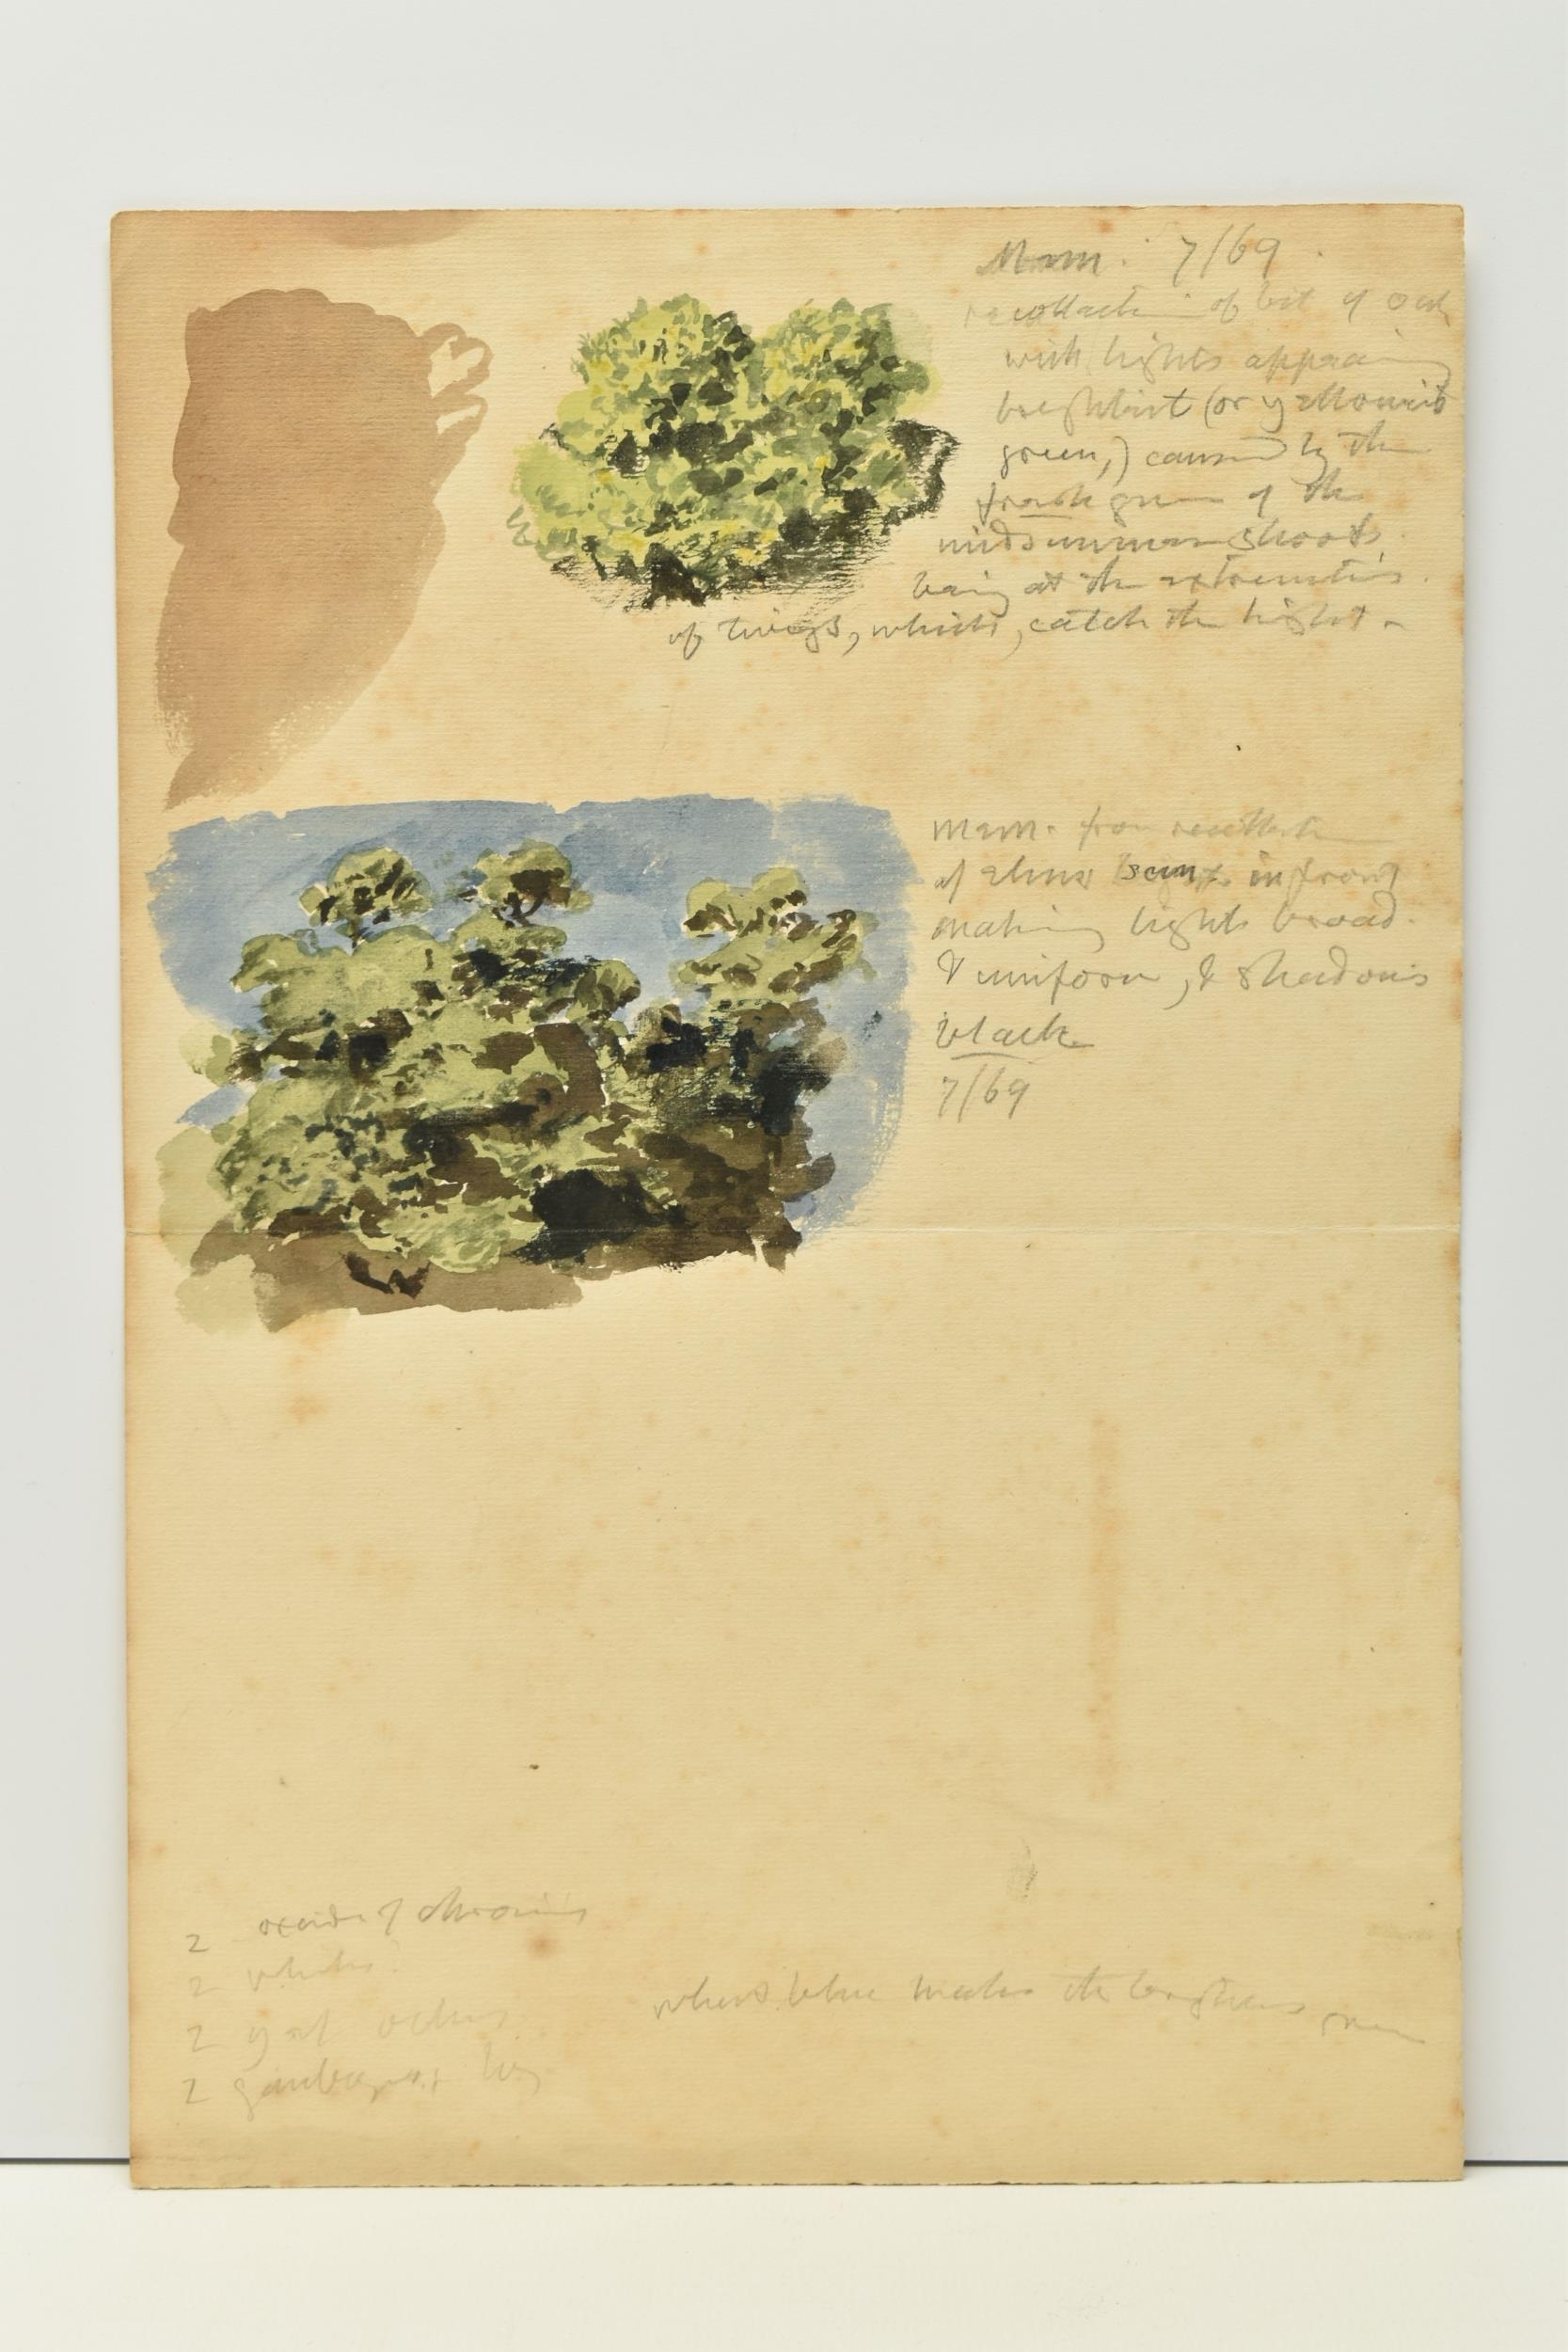 Mem. 7/69.
recollection of bit of oak
with lights appearing
brightest (or yellowish
green,) caused by the
fresh green of the
midsummer shoots,
being at the extremities
of twigs, which, catch the light -
Mem. from recollection
of elms sun in front
making lights broad
& uniform, & shadows
black
7/69
2 oxide of chromium
2 white
2 yel ochre
2
where blue makes the